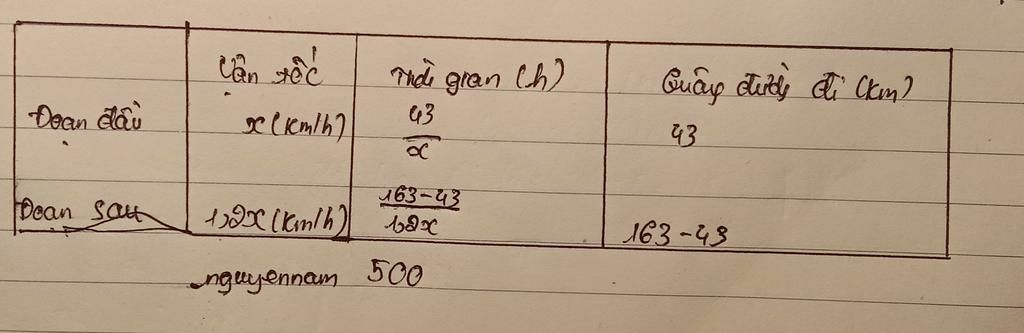 Vận tốc Thời gian (h) Quãng đường đi (km)
Đoạn đầu x (km/h) 43/x 43
Đoạn sau 1,2x (km/h) (163-43)/1,2x 163-43
nguyennam 500